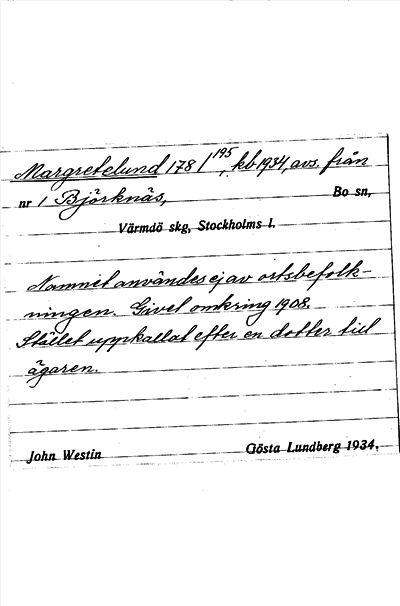 Margretelund 178/195, kb 1934, avs. från
nr 1 Björknäs, Bo sn,
Värmdö skg, Stockholms l.
Namnet användes ej av ortsbefolk-
ningen. Givet omkring 1908.
Stället uppkallat efter en dotter till
ägaren.
John Westin Gösta Lundberg 1934.